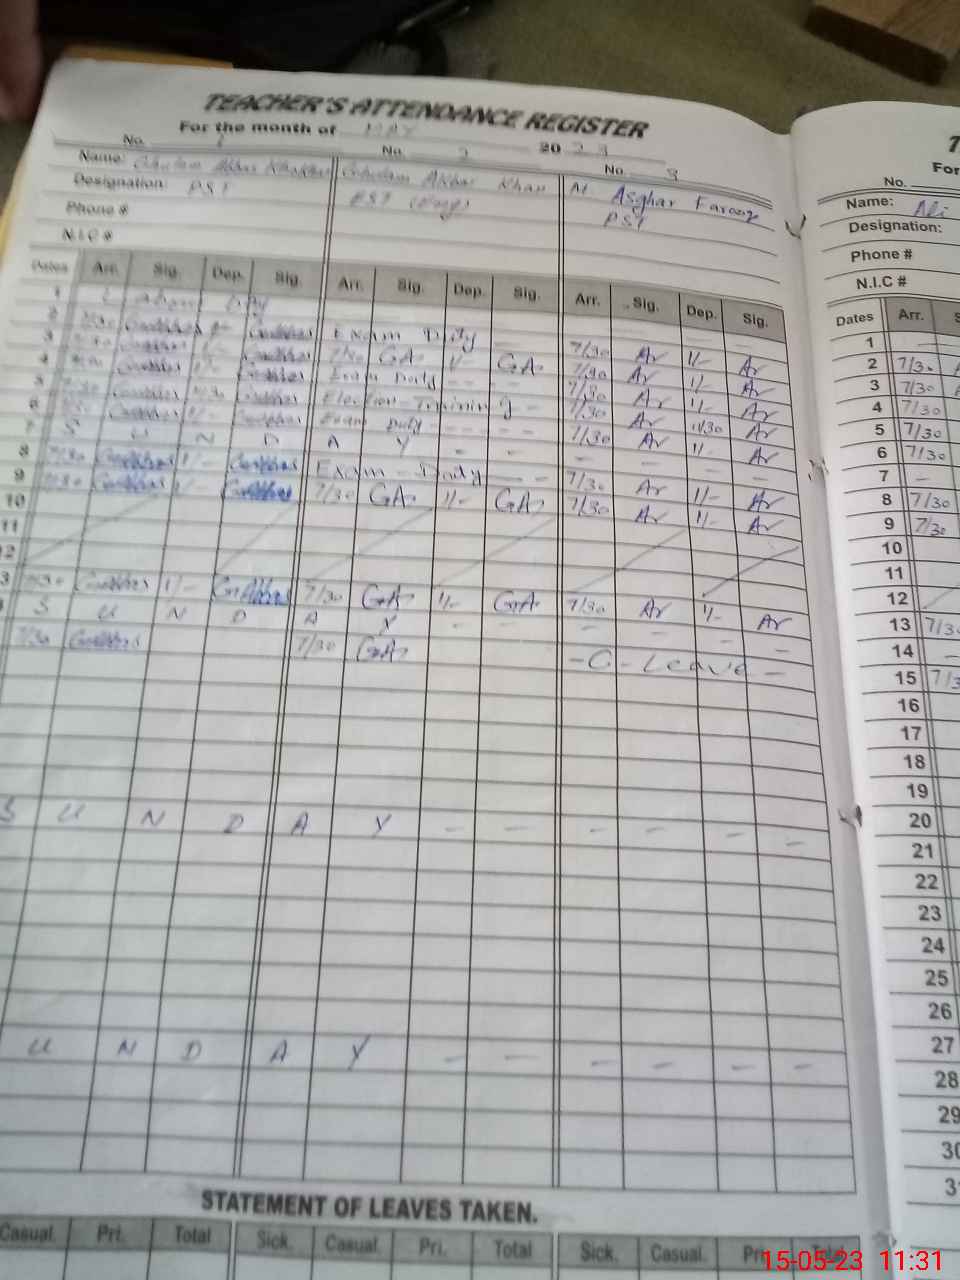 TEACHER'S ATTENDANCE REGISTER
For the month of MAY 2023
No. 1 No. 2 No. 3
Name: Ghulam Akbar Khan M Asghar Farooq
Designation: PST EST PST
Phone #
N.I.C #
Dates Arr. Sig. Dep. Sig. Arr. Sig. Dep. Sig. Arr. Sig. Dep. Sig.
1 Labour Day
2 7/30 Exam Duty - - 7/30 Ar 1/- Ar
3 7/30 GA 1/- GA 7/30 Ar 1/- Ar
4 Exam Duty - - - 7/30 Ar 1/- Ar
5 Election-Training - 7/30 Ar 11/30 Ar
6 Exam Duty - - - 7/30 Ar 1/- Ar
7 S U N D A Y - - - - - -
8 7/30 1/- Exam-Duty - - 7/30 Ar 1/- Ar
9 7/30 1/- 7/30 GA 1/- GA 7/30 Ar 1/- Ar
10
11
12
3 7/30 1/- 7/30 GA 1/- GA 7/30 Ar 1/- Ar
S U N D A Y - - - - - -
7/30 7/30 GA -C-Leave-
S U N D A Y - - - - - -
U N D A Y - - - - - -
STATEMENT OF LEAVES TAKEN.
Casual. Pri. Total Sick. Casual. Pri. Total Sick. Casual. Total
For
No.
Name: Ali
Designation:
Phone #
N.I.C #
Dates Arr.
1 -
2 7/30
3 7/30
4 7/30
5 7/30
6 7/30
7 -
8 7/30
9 7/30
10
11
12
13 7/30
14 -
15 7/3
16
17
18
19
20
21
22
23
24
25
26
27
28
29
30
3
15-05-23 11:31